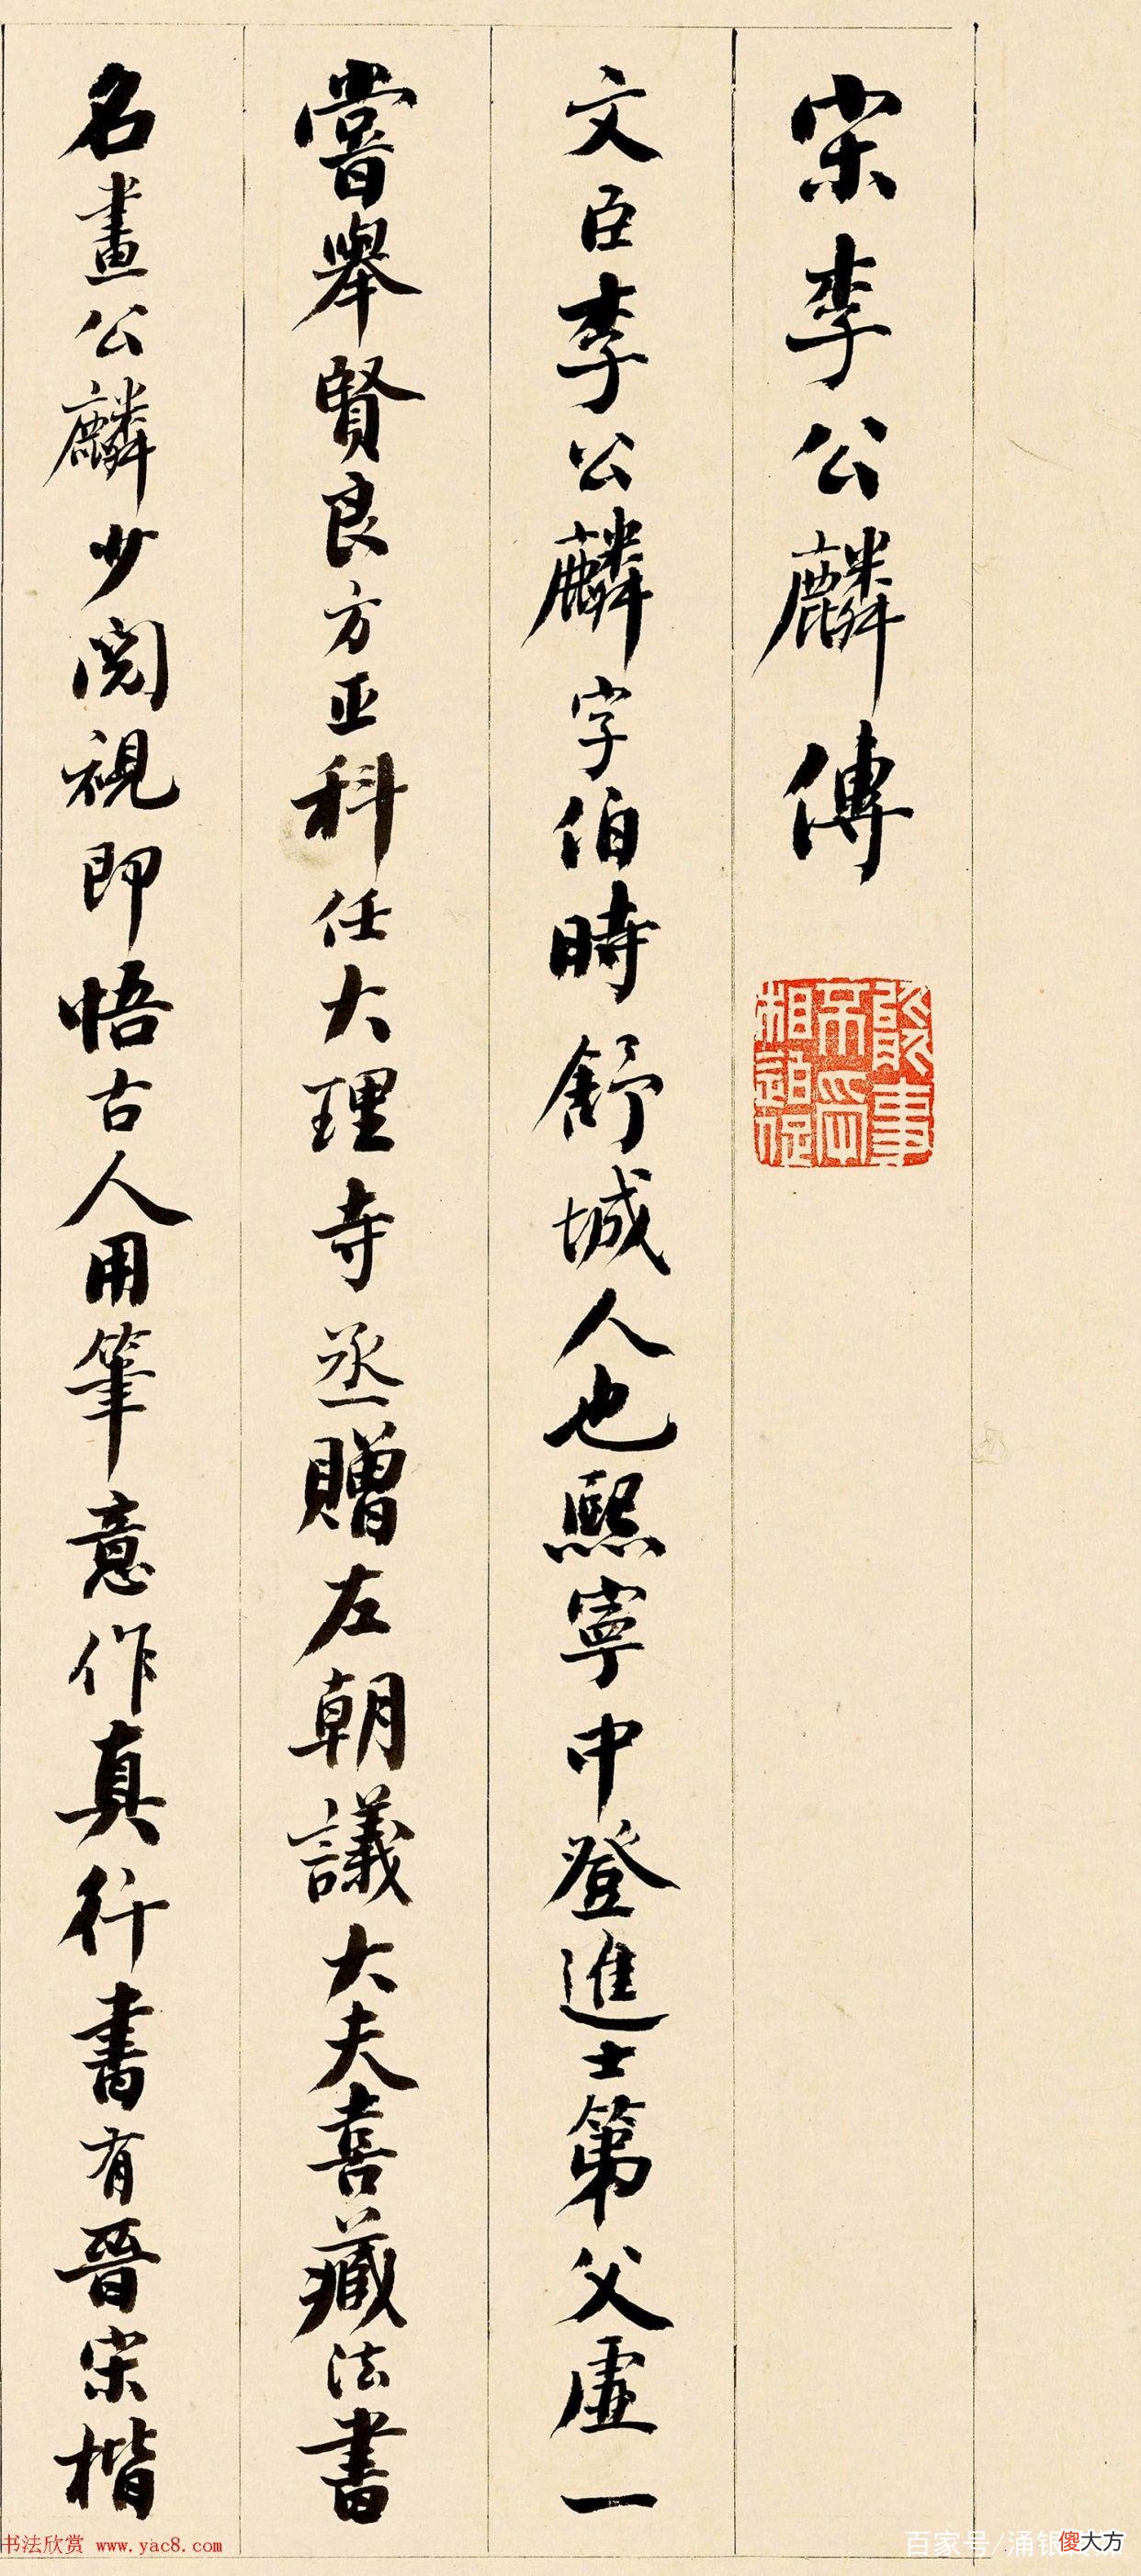 宋李公麟傳
文臣李公麟字伯時舒城人也熙寧中登進士第父虛一
嘗舉賢良方正科任大理寺丞贈左朝議大夫喜藏法書
名畫公麟少閱視即悟古人用筆意作真行書有晉宋楷
书法欣赏 www.yac8.com
百家号/涌银
傻大方